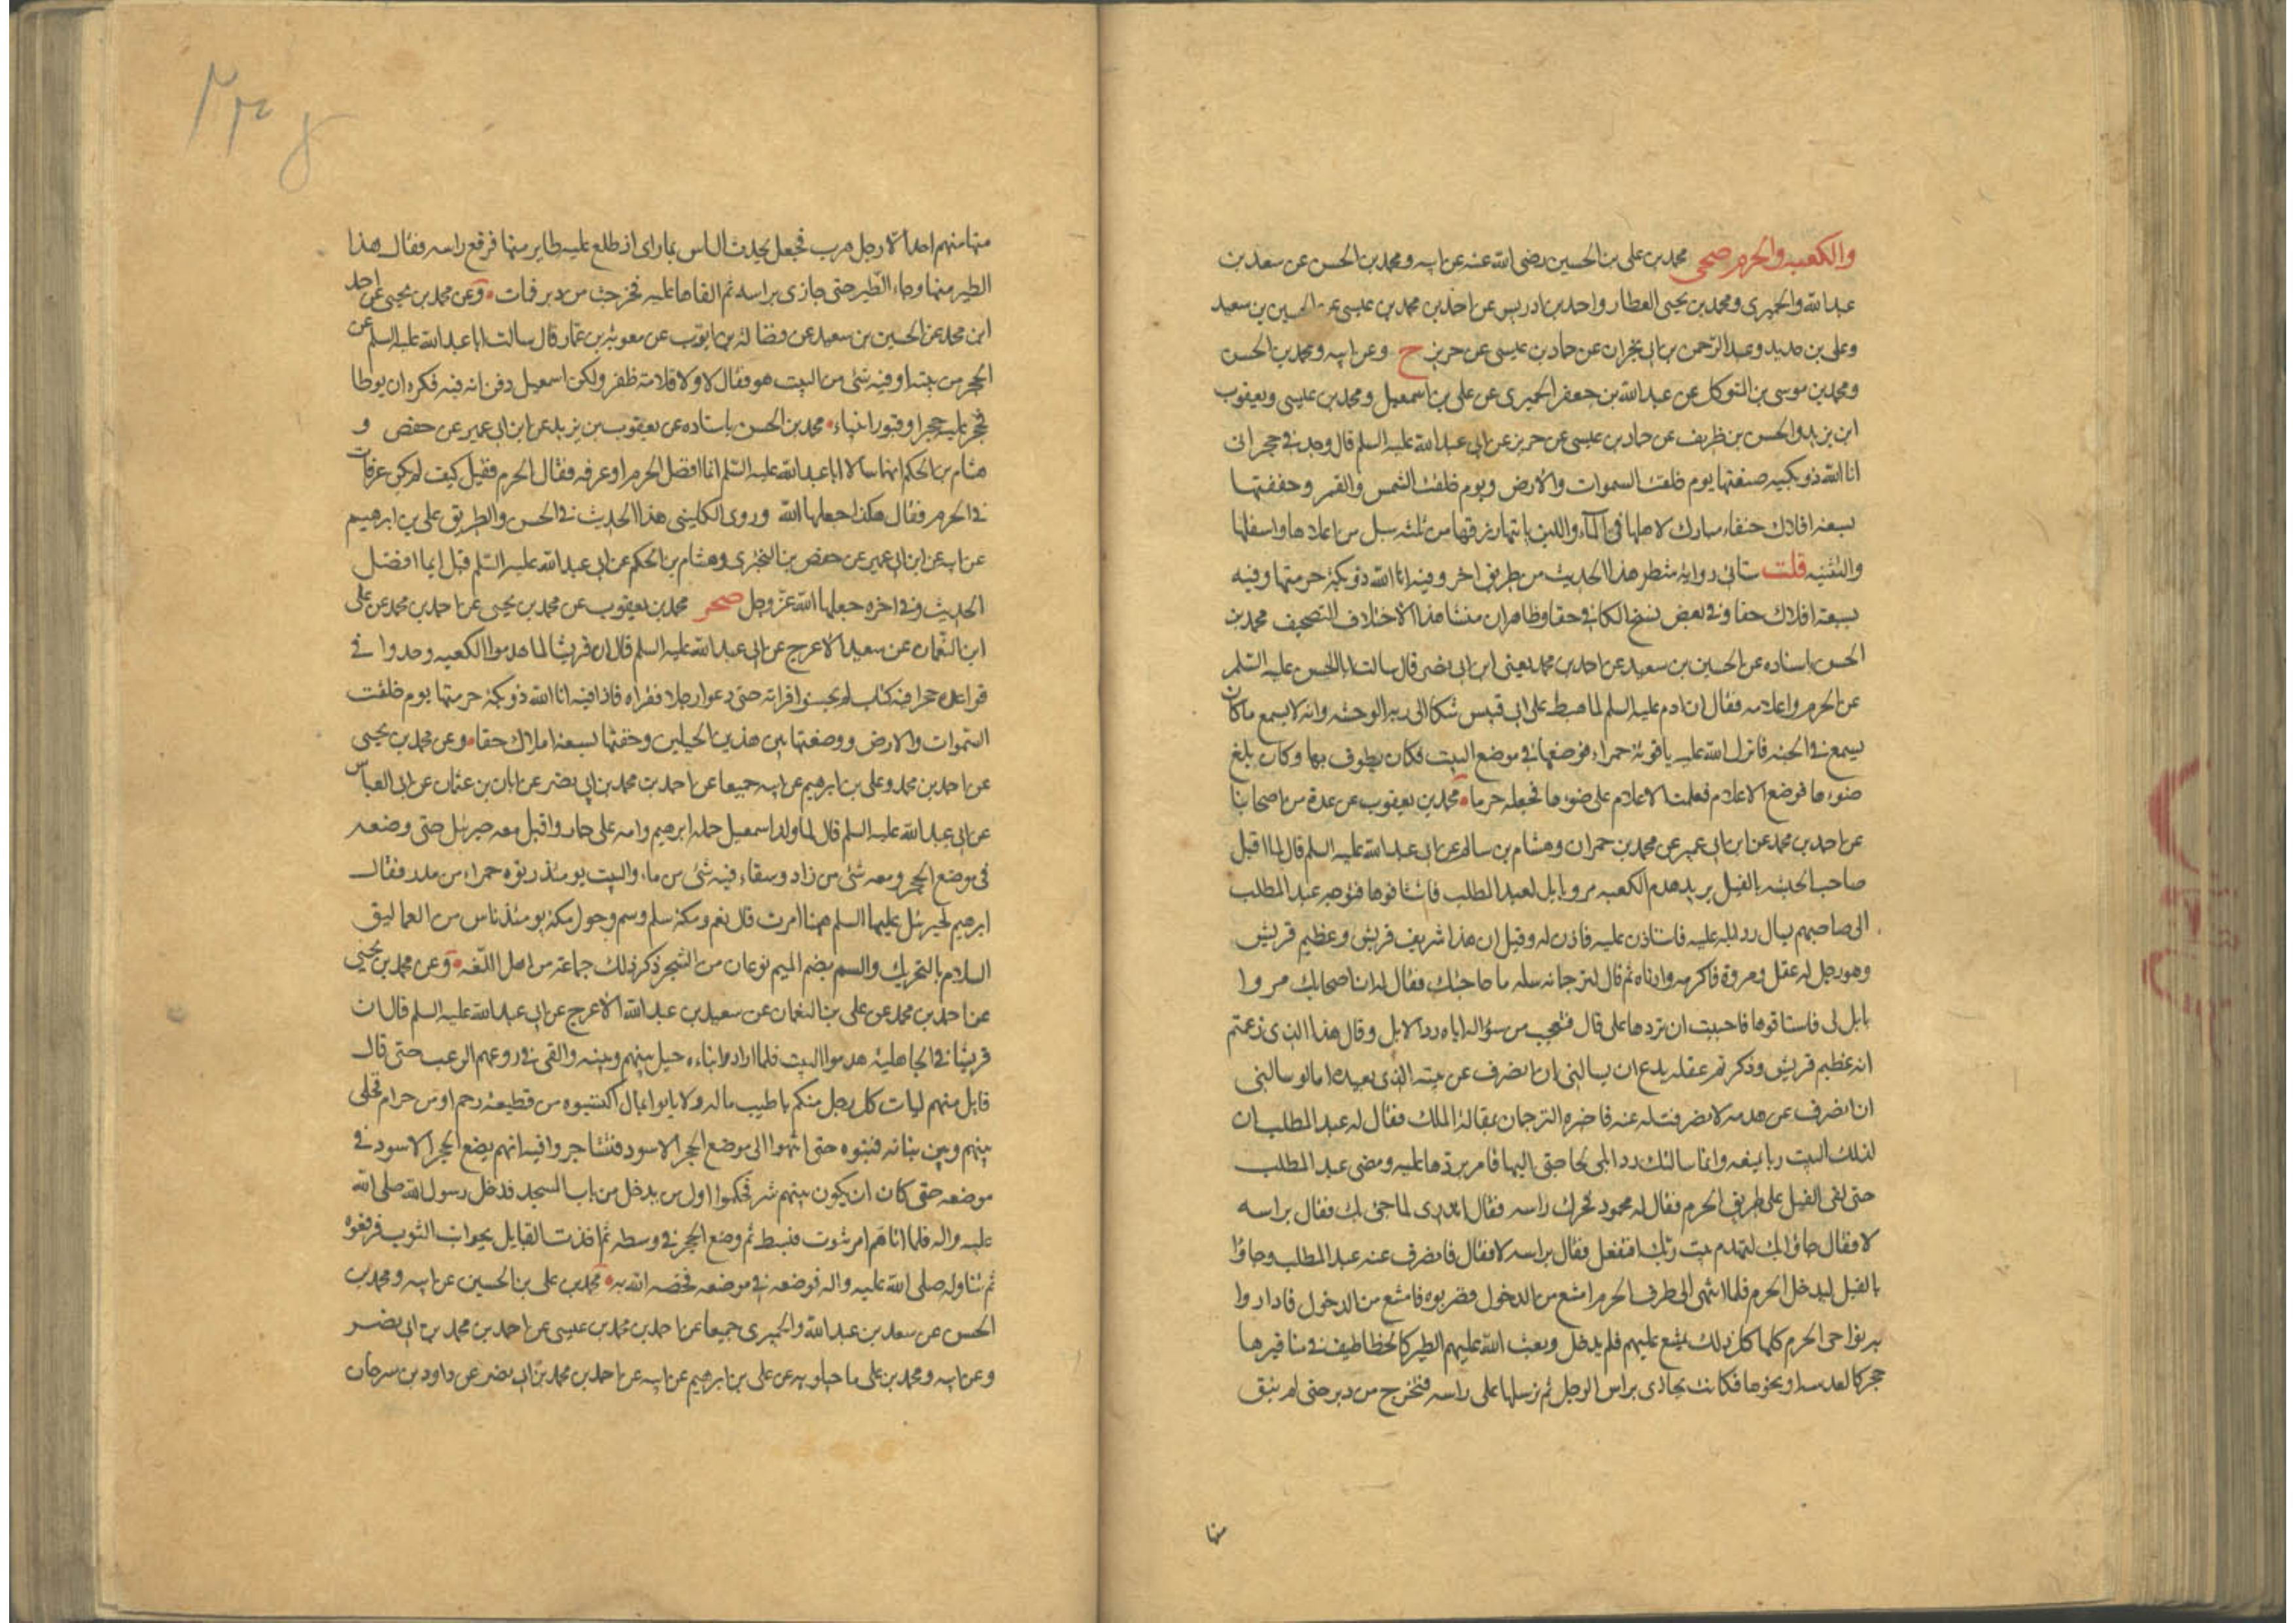 والكعبه والحرم صحى محمد بن على بن الحسين رضى الله عنه عن ابيه ومحمد بن الحسن عن سعد بن
عبد الله والحميرى ومحمد بن يحيى العطار واحمد بن ادريس عن احمد بن محمد بن عيسى عن الحسين بن سعيد
وعلى بن حديد وعبد الرحمن بن ابى نجران عن حماد بن عيسى عن حريز ح وعن ابيه ومحمد بن الحسن
ومحمد بن موسى بن المتوكل عن عبد الله بن جعفر الحميرى عن على بن اسمعيل ومحمد بن عيسى ويعقوب
ابن يزيد والحسن بن ظريف عن حماد بن عيسى عن حريز عن ابى عبد الله عليه السلم قال وجد فى حجر انى
انا الله ذو بكه صنعتها يوم خلقت السموات والارض ويوم خلقت الشمس والقمر وحففتها
بسبعة افلاك حنفاء مبارك لاهلها فى الماء واللبن ياتيها رزقها من ثلثه سبل من اعلاها واسفلها
والثنيه قلت ستاتى رواية شطر هذا الحديث من طريق اخر وفيه انا الله ذو بكة حرمتها وفيه
بسبعة افلاك حقا وفى بعض نسخ الكافى حقا وظاهر ان منشا هذا الاختلاف التصحيف محمد بن
الحسن باسناده عن الحسين بن سعيد عن احمد بن محمد يعنى ابن ابى نصر قال سالت ابا الحسن عليه السلم
عن الحرم واعلامه فقال ان ادم عليه السلم لما هبط على ابى قبيس شكا الى ربه الوحشه وانه لا يسمع ما كان
يسمع فى الجنه فانزل الله عليه ياقوتة حمراء فوضعها فى موضع البيت فكان يطوف بها وكان بلغ
ضوءها موضع الاعلام فعلمت الاعلام على ضوءها فجعله حرما محمد بن يعقوب عن عدة من اصحابنا
عن احمد بن محمد عن ابن ابى عمير عن محمد بن حمران وهشام بن سالم عن ابى عبد الله عليه السلم قال لما اقبل
صاحب الحبشه بالفيل يريد هدم الكعبه مروا بابل لعبد المطلب فاستاقوها فتوجه عبد المطلب
الى صاحبهم يسال رد ابله عليه فاستاذن عليه فاذن له وقيل ان هذا شريف قريش وعظيم قريش
وهو رجل له عقل ومروة فاكرمه وادناه ثم قال لترجمانه سله ما حاجتك فقال له ان اصحابك مروا
بابل لى فاستاقوها فاحببت ان تردها على قال فتعجب من سؤاله اياه رد الابل وقال هذا الذى زعمتم
انه عظيم قريش وذكرتم عقله يدع ان يسالنى ان انصرف عن بيته الذى يعبده اما لو سالنى
ان انصرف عن هدمه لانصرفت له عنه فاخبره الترجمان بمقالة الملك فقال له عبد المطلب ان
لذلك البيت ربا يمنعه وانما سالتك رد ابلى لحاجتى اليها فامر بردها عليه ومضى عبد المطلب
حتى لقى الفيل على طريق الحرم فقال له محمود فحرك راسه فقال اتدرى لما جئ بك فقال براسه
لا فقال جاؤا بك لتهدم بيت ربك افتفعل فقال براسه لا فقال فانصرف عنه عبد المطلب وجاؤا
بالفيل ليدخل الحرم فلما انتهى الى طرف الحرم امتنع من الدخول فضربوه فامتنع من الدخول فاداروا
به نواحى الحرم كلها كل ذلك يمتنع عليهم فلم يدخل وبعث الله عليهم الطير كالخطاطيف فى مناقيرها
حجر كالعدسه او نحوها فكانت تحاذى براس الرجل ثم ترسلها على راسه فتخرج من دبره حتى لم يبق
منها
منها منهم احد الا رجل هرب فجعل يحدث الناس بما راى اذ طلع عليه طاير منها فرفع راسه فقال هذا
الطير منها وجاء الطير حتى حاذى براسه ثم القاها عليه فخرجت من دبره فمات وعن محمد بن يحيى عن احمد
ابن محمد عن الحسين بن سعيد عن فضالة بن ايوب عن معوية بن عمار قال سالت ابا عبد الله عليه السلم عن
الحجر من بيته او فيه شئ من البيت هو فقال لا ولا قلامة ظفر ولكن اسمعيل دفن امه فيه فكره ان يوطا
فحجر عليه حجرا وفيه قبور انبياء محمد بن الحسن باسناده عن يعقوب بن يزيد عن ابن ابى عمير عن حفص و
هشام بن الحكم انهما سالا ابا عبد الله عليه السلم ايما افضل الحرم او عرفه فقال الحرم فقيل كيف لم تكن عرفات
فى الحرم فقال هكذا جعلها الله وروى الكلينى هذا الحديث فى الحسن والطريق على بن ابرهيم
عن ابيه عن ابن ابى عمير عن حفص بن البخترى وهشام بن الحكم عن ابى عبد الله عليه السلم قيل ايما افضل
الحديث وفى اخره جعلها الله عز وجل صحر محمد بن يعقوب عن محمد بن يحيى عن احمد بن محمد عن على
ابن النعمان عن سعيد الاعرج عن ابى عبد الله عليه السلم قال ان قريشا لما هدموا الكعبه وجدوا فى
قواعده حجرا فيه كتاب لم يحسنوا قراته حتى دعوا رجلا فقراه فاذا فيه انا الله ذو بكة حرمتها يوم خلقت
السموات والارض ووضعتها بين هذين الجبلين وحففتها بسبعة املاك حقا وعن محمد بن يحيى
عن احمد بن محمد وعلى بن ابرهيم عن ابيه جميعا عن احمد بن محمد بن ابى نصر عن ابان بن عثمان عن ابى العباس
عن ابى عبد الله عليه السلم قال لما ولد اسمعيل حمله ابرهيم وامه على حمار واقبل معه جبرئيل حتى وضعه
فى موضع الحجر ومعه شئ من زاد وسقاء فيه شئ من ماء والبيت يومئذ ربوة حمراء من مدر فقال
ابرهيم لجبرئيل عليهما السلم ههنا امرت قال نعم ومكة سلم وسمر وحول مكة يومئذ ناس من العماليق
السلام بالتحريك والسمر بضم الميم نوعان من الشجر ذكر ذلك جماعة من اهل اللغه وعن محمد بن يحيى
عن احمد بن محمد عن على بن النعمان عن سعيد بن عبد الله الاعرج عن ابى عبد الله عليه السلم قال ان
قريشا فى الجاهلية هدموا البيت فلما ارادوا بناءه حيل بينهم وبينه والقى فى روعهم الرعب حتى قال
قايل منهم ليات كل رجل منكم باطيب ماله ولا ياتوا بمال اكتسبوه من قطيعة رحم او من حرام فخلى
بينهم وبين بنائه فبنوه حتى انتهوا الى موضع الحجر الاسود فتشاجروا فيه ايهم يضع الحجر الاسود فى
موضعه حتى كان ان يكون بينهم شر فحكموا اول من يدخل من باب المسجد فدخل رسول الله صلى الله
عليه واله فلما اتاهم امر بثوب فبسط ثم وضع الحجر فى وسطه ثم اخذت القبايل بجوانب الثوب فرفعوه
ثم تناوله صلى الله عليه واله فوضعه فى موضعه فخصه الله به محمد بن على بن الحسين عن ابيه ومحمد بن
الحسن عن سعد بن عبد الله والحميرى جميعا عن احمد بن محمد بن عيسى عن احمد بن محمد بن ابى نصر
وعن ابيه ومحمد بن على ماجيلويه عن على بن ابرهيم عن ابيه عن احمد بن محمد بن ابى نصر عن داود بن سرحان